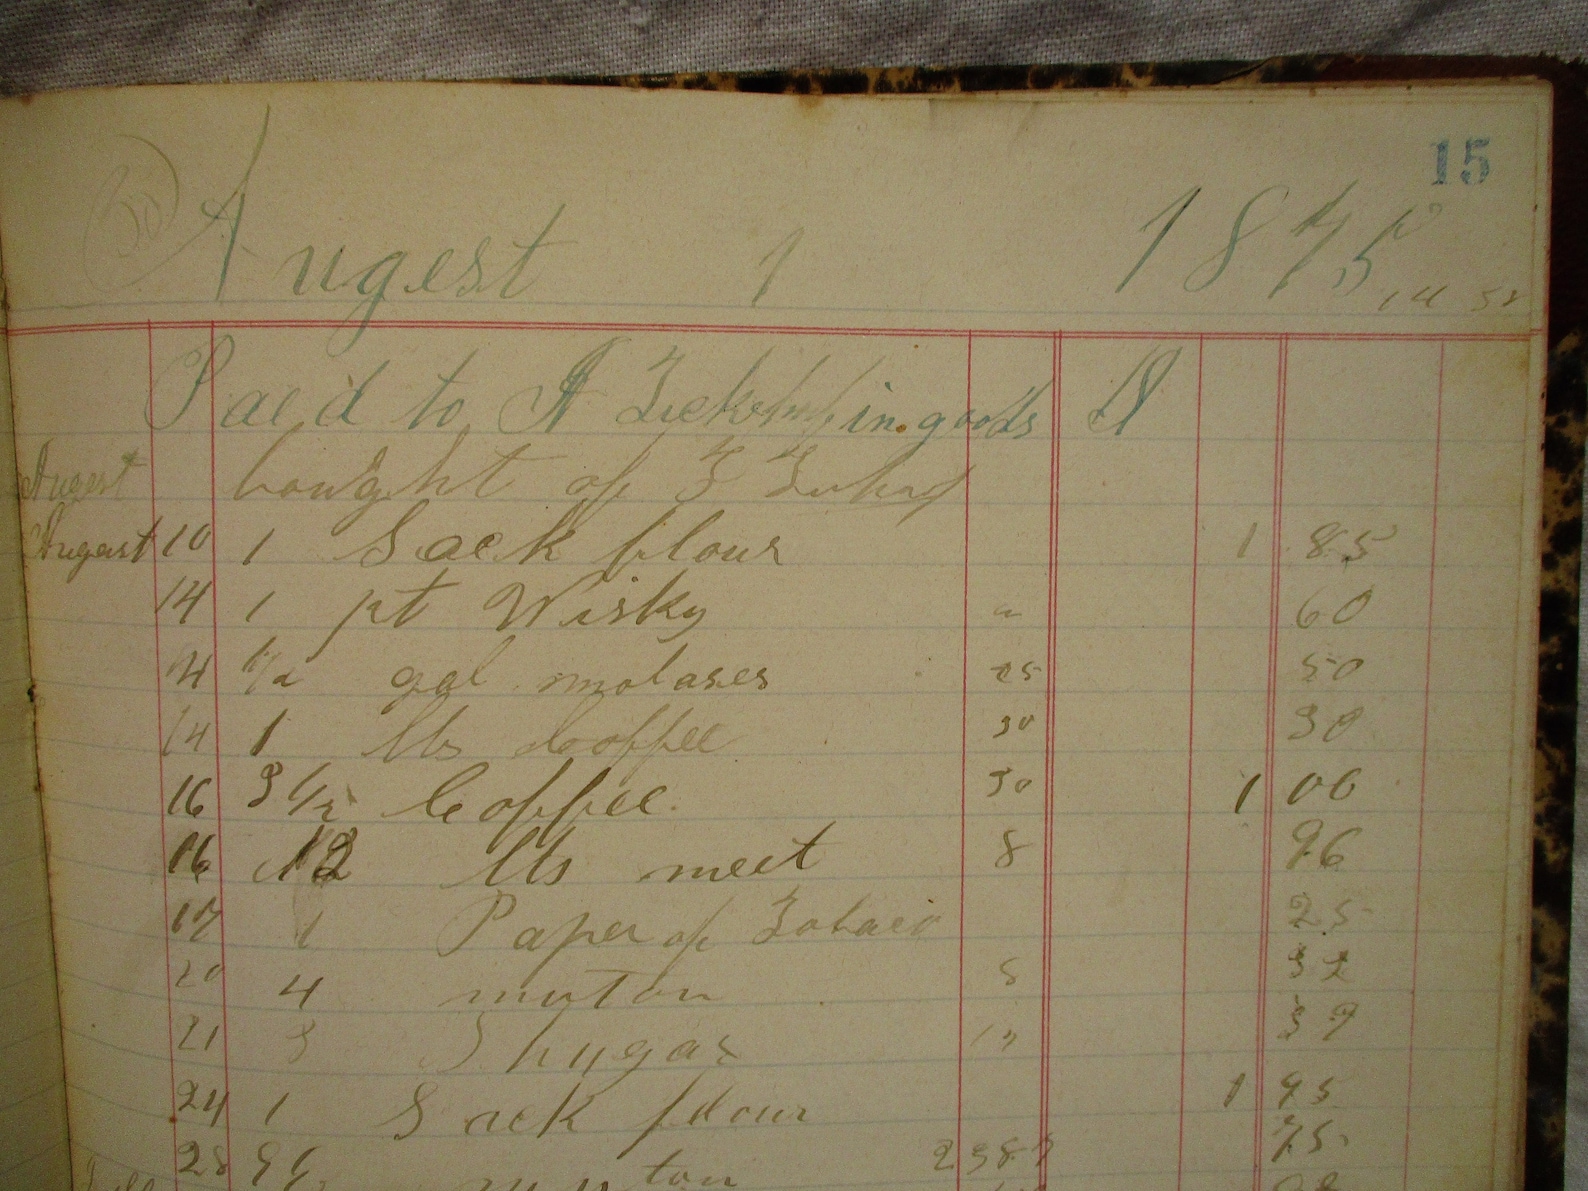 15
Augest 1 1875
Paeid to A in goods
Augest bought of
Augast 10 1 Sack flour 1 85
14 1 pt Wisky 60
14 gal molases 25 50
14 1 lbs Coffee 30 30
16 3 1/2 Coffee 30 1 00
16 12 lbs meet 8 96
17 1 Paper of Tobaco 25
20 4 muton 8 32
21 3 Shugar 13 39
24 1 Sack flour 1 95
28 muton 75